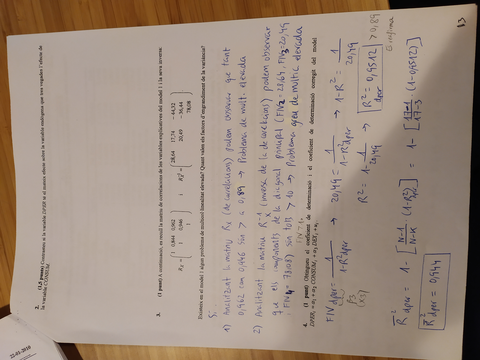 13
2. (1,5 punts) Contrasteu si la variable DPIB té el mateix efecte sobre la variable endògena que tres vegades l'efecte de
la variable CONSUM.
3. (1 punt) A continuació, es recull la matriu de correlacions de les variables explicatives del model 1 i la seva inversa:
R_X = ( 1 0,844 0,962
1 0,946
1 )
R_X^-1 = ( 28,64 17,74 -44,32
20,49 -36,44
78,08 )
Existeix en el model 1 algun problema de multicol·linealitat elevada? Quant valen els factors d'engrandiment de la variància?
Sí.
1) Analitzant la matriu Rx (de correlacions) podem observar que tant
0,962 com 0,946 són > a 0,89 → Problema de mult. elevada
2) Analitzant la matriu Rx^-1 (inversa de la de correlacions) podem observar
que els components de la diagonal principal (FIV2 = 28,64, FIV3 = 20,49
FIV4 = 78,08) són tots > 10 → Problema greu de multic. elevada
4. (1 punt) Obtingueu el coeficient de determinació i el coeficient de determinació corregit del model
FIV dper = 1 / 1-R² dper → 20,49 = 1 / 1-R² dper → 1-R² = 1 / 20,49
R² = 1 - 1 / 20,49 → R² dper = 0,9512 > 0,89
R̄² dper = 1 - [ N-1 / N-K · (1-R²) ] = 1 - [ 17-1 / 17-3 · (1-0,9512) ]
R̄² dper = 0,944
22-01-2018